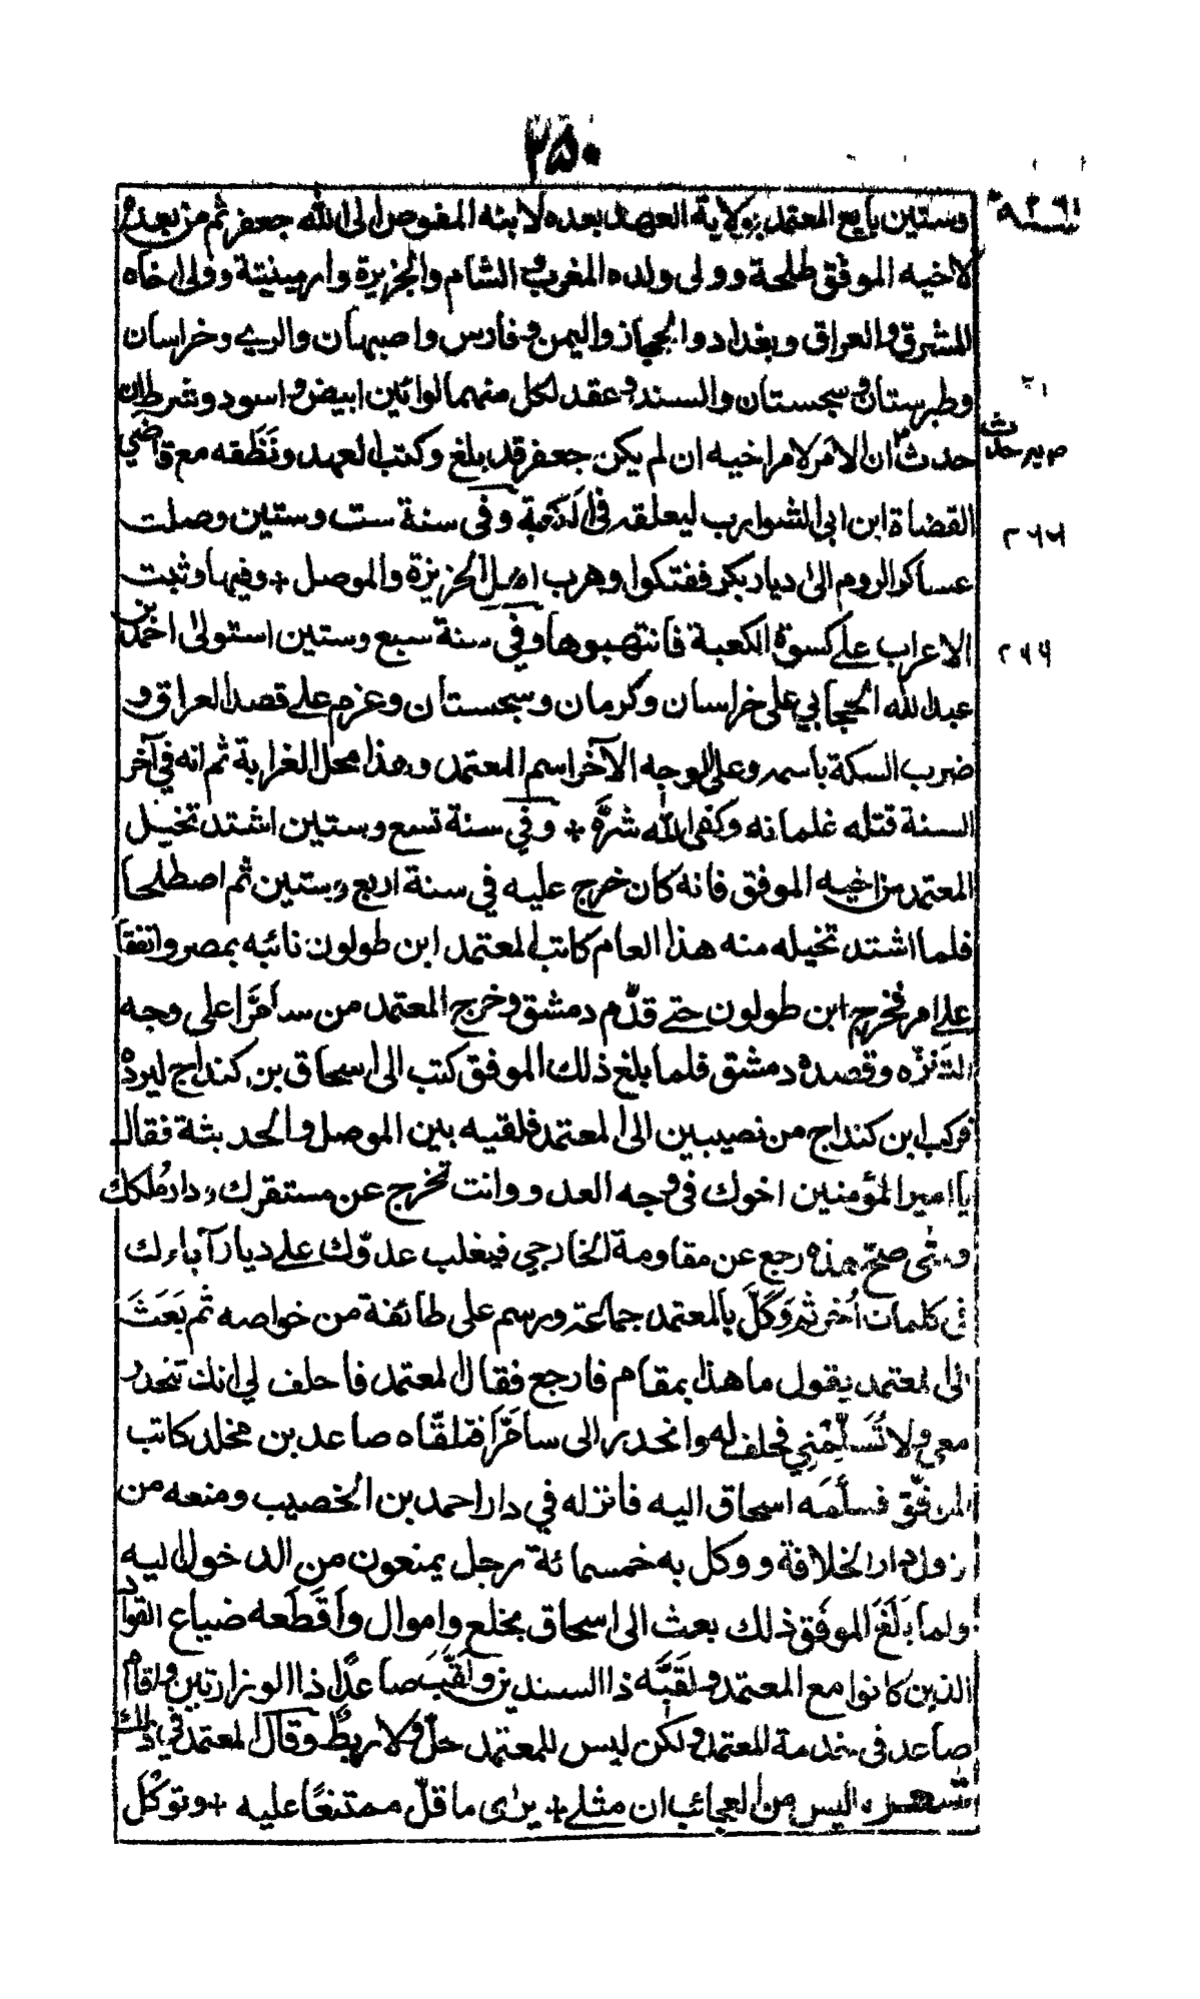 ٣٥٠
وستين بايع المعتمد بولاية العهد بعده لابنه المفوض الى الله جعفر ثم من بعده
لاخيه الموفق طلحة وولى ولده المغرب والشام والجزيرة وارمينية وولى اخاه
المشرق والعراق وبغداد والحجاز واليمن وفارس واصبهان والري وخراسان
وطبرستان وسجستان والسند وعقد لكل منهما لوائين ابيض واسود وشرط ان
حدث ان الامر لاخيه ان لم يكن جعفر قد بلغ وكتب العهد ونفذه مع قاضي
القضاة ابن ابي الشوارب ليعلقه في الكعبة وفي سنة ست وستين وصلت
عساكر الروم الى ديار بكر ففتكوا وهرب اهل الجزيرة والموصل + وفيها وثبت
الاعراب على كسوة الكعبة فانتهبوها وفي سنة سبع وستين استولى احمد بن
عبد الله الحجابي على خراسان وكرمان وسجستان وعزم على قصد العراق و
ضرب السكة باسمه وعلى الوجه الآخر اسم المعتمد وهذا محل الغرابة ثم انه في آخر
السنة قتله غلمانه وكفى الله شرَّه + وفي سنة تسع وستين اشتد تخيل
المعتمد من اخيه الموفق فانه كان خرج عليه في سنة اربع وستين ثم اصطلحا
فلما اشتد تخيله منه هذا العام كاتب المعتمد ابن طولون نائبه بمصر واتفقا
على امر فخرج ابن طولون حتى قدّم دمشق وخرج المعتمد من سامرَّا على وجه
التنزّه وقصده دمشق فلما بلغ ذلك الموفق كتب الى اسحاق بن كنداج ليرده
فركب ابن كنداج من نصيبين الى المعتمد فلقيه بين الموصل والحديثة فقال
يا امير المؤمنين اخوك في وجه العدو وانت تخرج عن مستقرك ودار مُلكك
ومتى صحّ هذه رجع عن مقاومة الخارجي فيغلب عدوّك على ديار آباءك
في كلمات اُخر ثم وَكَّلَ بالمعتمد جماعة ورسم على طائفة من خواصه ثم بَعَثَ
الى المعتمد يقول ما هذا بمقام فارجع فقال المعتمد فاحلف لي انك تنحدر
معي ولا تُسَلّمني فحلف له وانحدر الى سامرَّا فتلقّاه صاعد بن مخلد كاتب
الموفّق فسلّمه اسحاق اليه فانزله في دار احمد بن الخصيب ومنعه من
نزول دار الخلافة ووكل به خمسمائة رجل يمنعون من الدخول اليه
ولما بَلَغَ الموفّق ذلك بعث الى اسحاق بخلع واموال واَقطَعه ضياع القواد
الذين كانوا مع المعتمد ولقبَّه ذا السندين ولَقَّبَ صاعدًا ذا الوزارتين واقام
صاعد في خدمة المعتمد ولكن ليس للمعتمد حلّ ولا ربطٌ وقال المعتمد في ذلك
شعر، اليس من العجائب ان مثلي + يرى ما قلّ ممتنعًا عليه + وتوكل
٢٦٦
٢٦٩